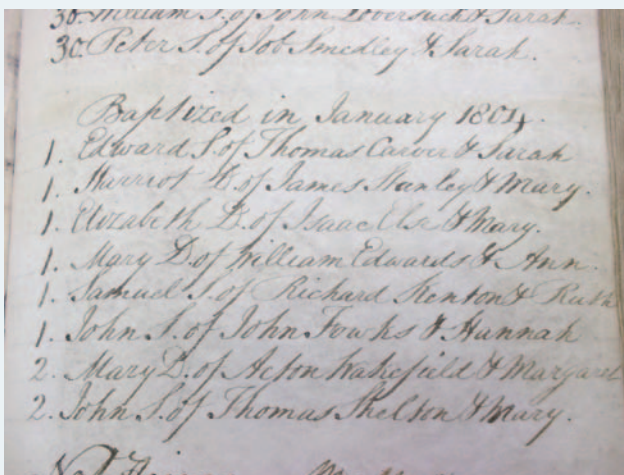 30. William S. of John Loversuch & Sarah.
30. Peter S. of Job Smedley & Sarah.
Baptized in January 1804.
1. Edward S. of Thomas Carver & Sarah
1. Harriot D. of James Stanley & Mary.
1. Elizabeth D. of Isaac Else & Mary.
1. Mary D. of William Edwards & Ann.
1. Samuel S. of Richard & Ruth
1. John S. of John Fowks & Hannah
2. Mary D. of Acton Wakefield & Margaret
2. John S. of Thomas Skelson & Mary.